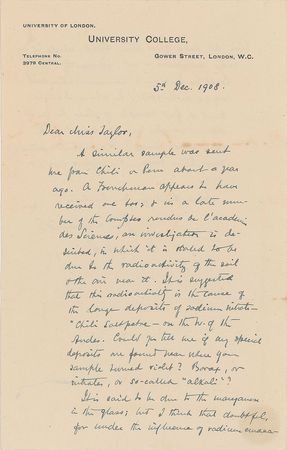 UNIVERSITY OF LONDON.
UNIVERSITY COLLEGE,
TELEPHONE NO.
2978 CENTRAL.
GOWER STREET, LONDON, W.C.
5th Dec. 1908.
Dear Miss Taylor,
A similar sample was sent
me from Chili or Peru about a year
ago. A Frenchman appears to have
received one too; & in a late num-
ber of the Comptes rendus de l'académie
des Sciences, an investigation is de-
scribed, in which it is stated to be
due to the radioactivity of the soil
& the air near it. It is suggested
that this radioactivity is the cause of
the large deposits of sodium nitrate -
"Chili Saltpetre - on the W. of the
Andes. Could you tell me if any special
deposits are found near where your
sample turned violet? Borax, or
nitrates, or so-called "alkali"?
It is said to be due to the manganese
in the glass; but I think that doubtful,
for under the influence of radium emana-